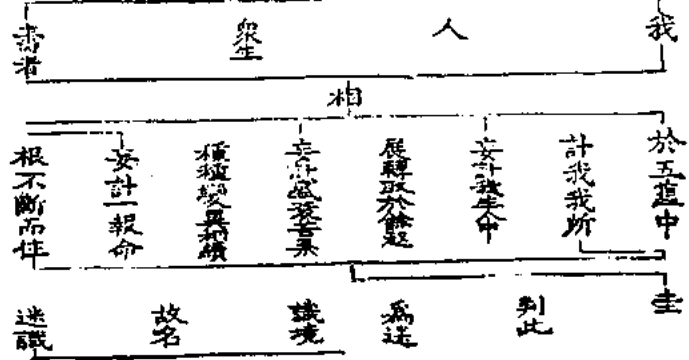 我
人
眾生
壽者
相
於五蘊中
計我我所
妄計我生人中
展轉取於餘趣
妄計盛衰苦果
種種變異相續
妄計一報命
根不斷而住
圭
判此
為迷
識境
故名
迷識